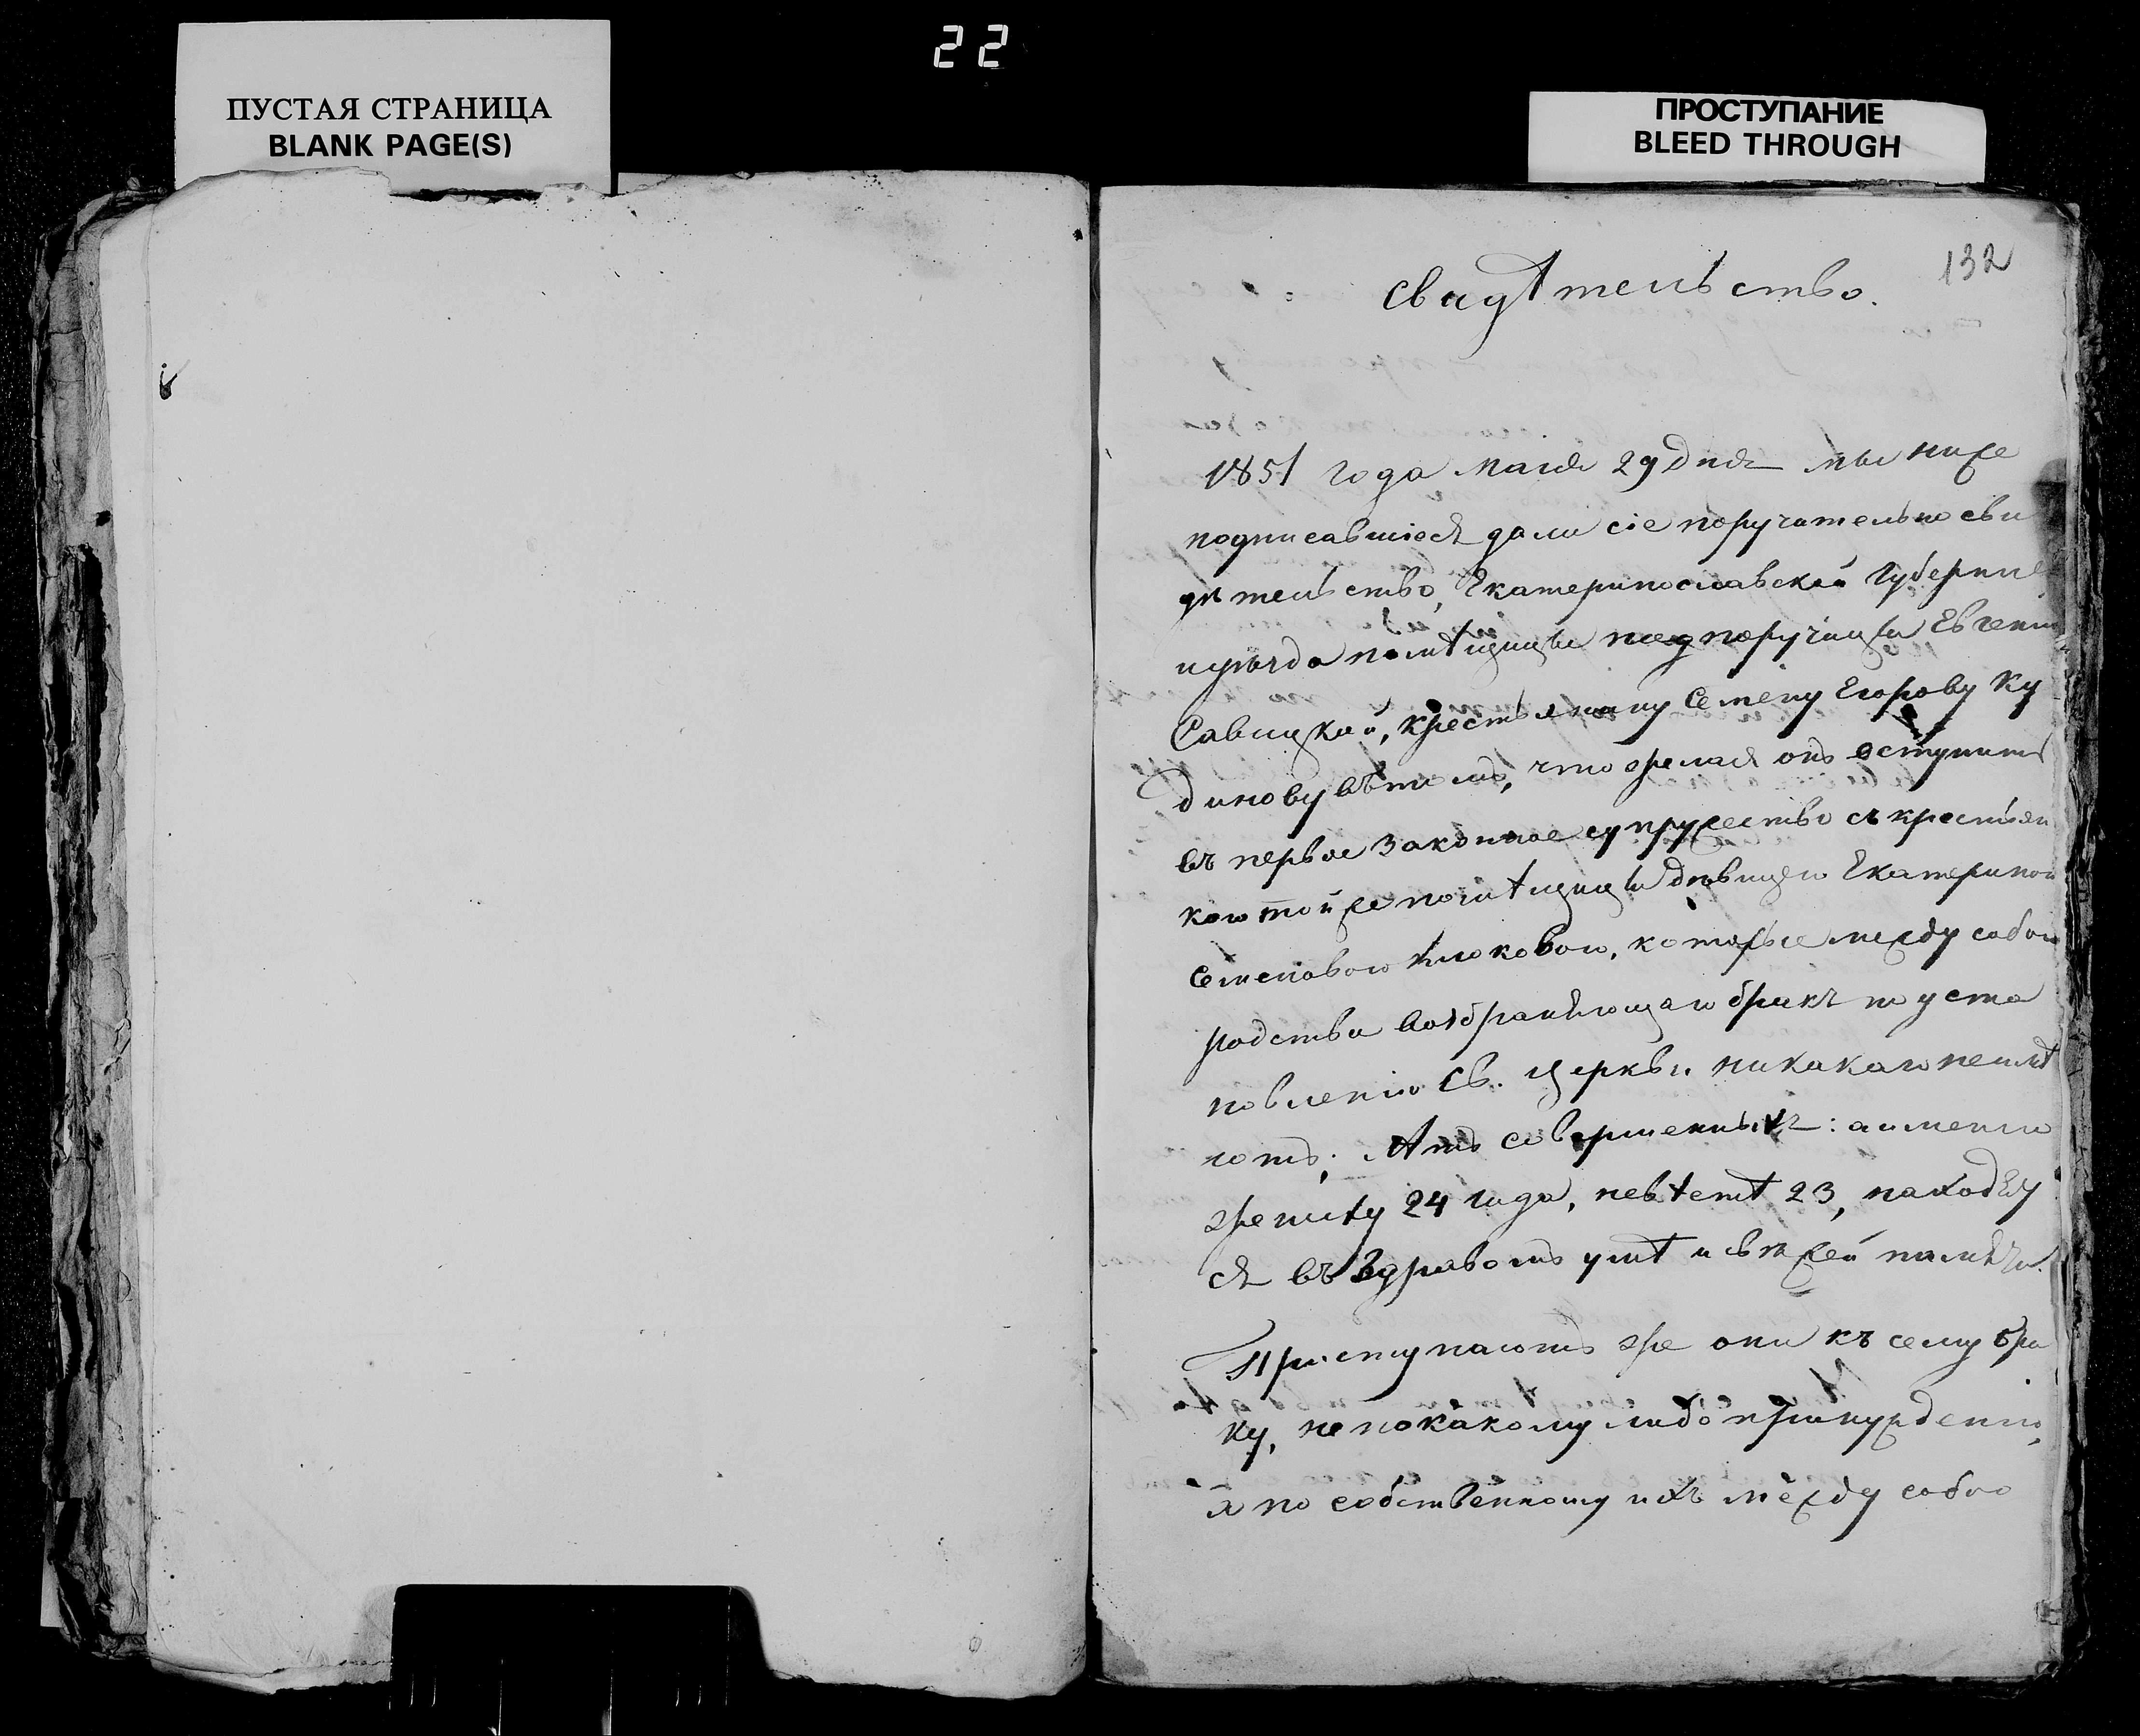 22
ПУСТАЯ СТРАНИЦА
BLANK PAGE(S)
ПРОСТУПАНИЕ
BLEED THROUGH
132
Свидѣтельство.
1851 года маія 29 дня мы ниже
подписавшіеся дали сіе поручительно сви
дѣтельство, Екатеринославской Губерніи
и уѣзда помѣщицы подпоручицы Евгеніи
Савицкой, крестьянину Семену Егорову Ку
динову въ томъ, что желая онъ вступить
въ первое законное супружество съ крестьян
кою той же помѣщицы дѣвицею Екатериною
Семеновою Клюковою, которые между собою
родства возбраняющаго бракъ по уста
новленію Св. Церкви никакаго неимѣ
ютъ; лѣтъ совершенныхъ: а именно
жениху 24 года, невѣстѣ 23, находяу
ся въ здравомъ умѣ и свѣжей памяти.
Приступаютъ же они къ сему бра
ку, не по какому либо принужденію,
а по собственному ихъ между собою